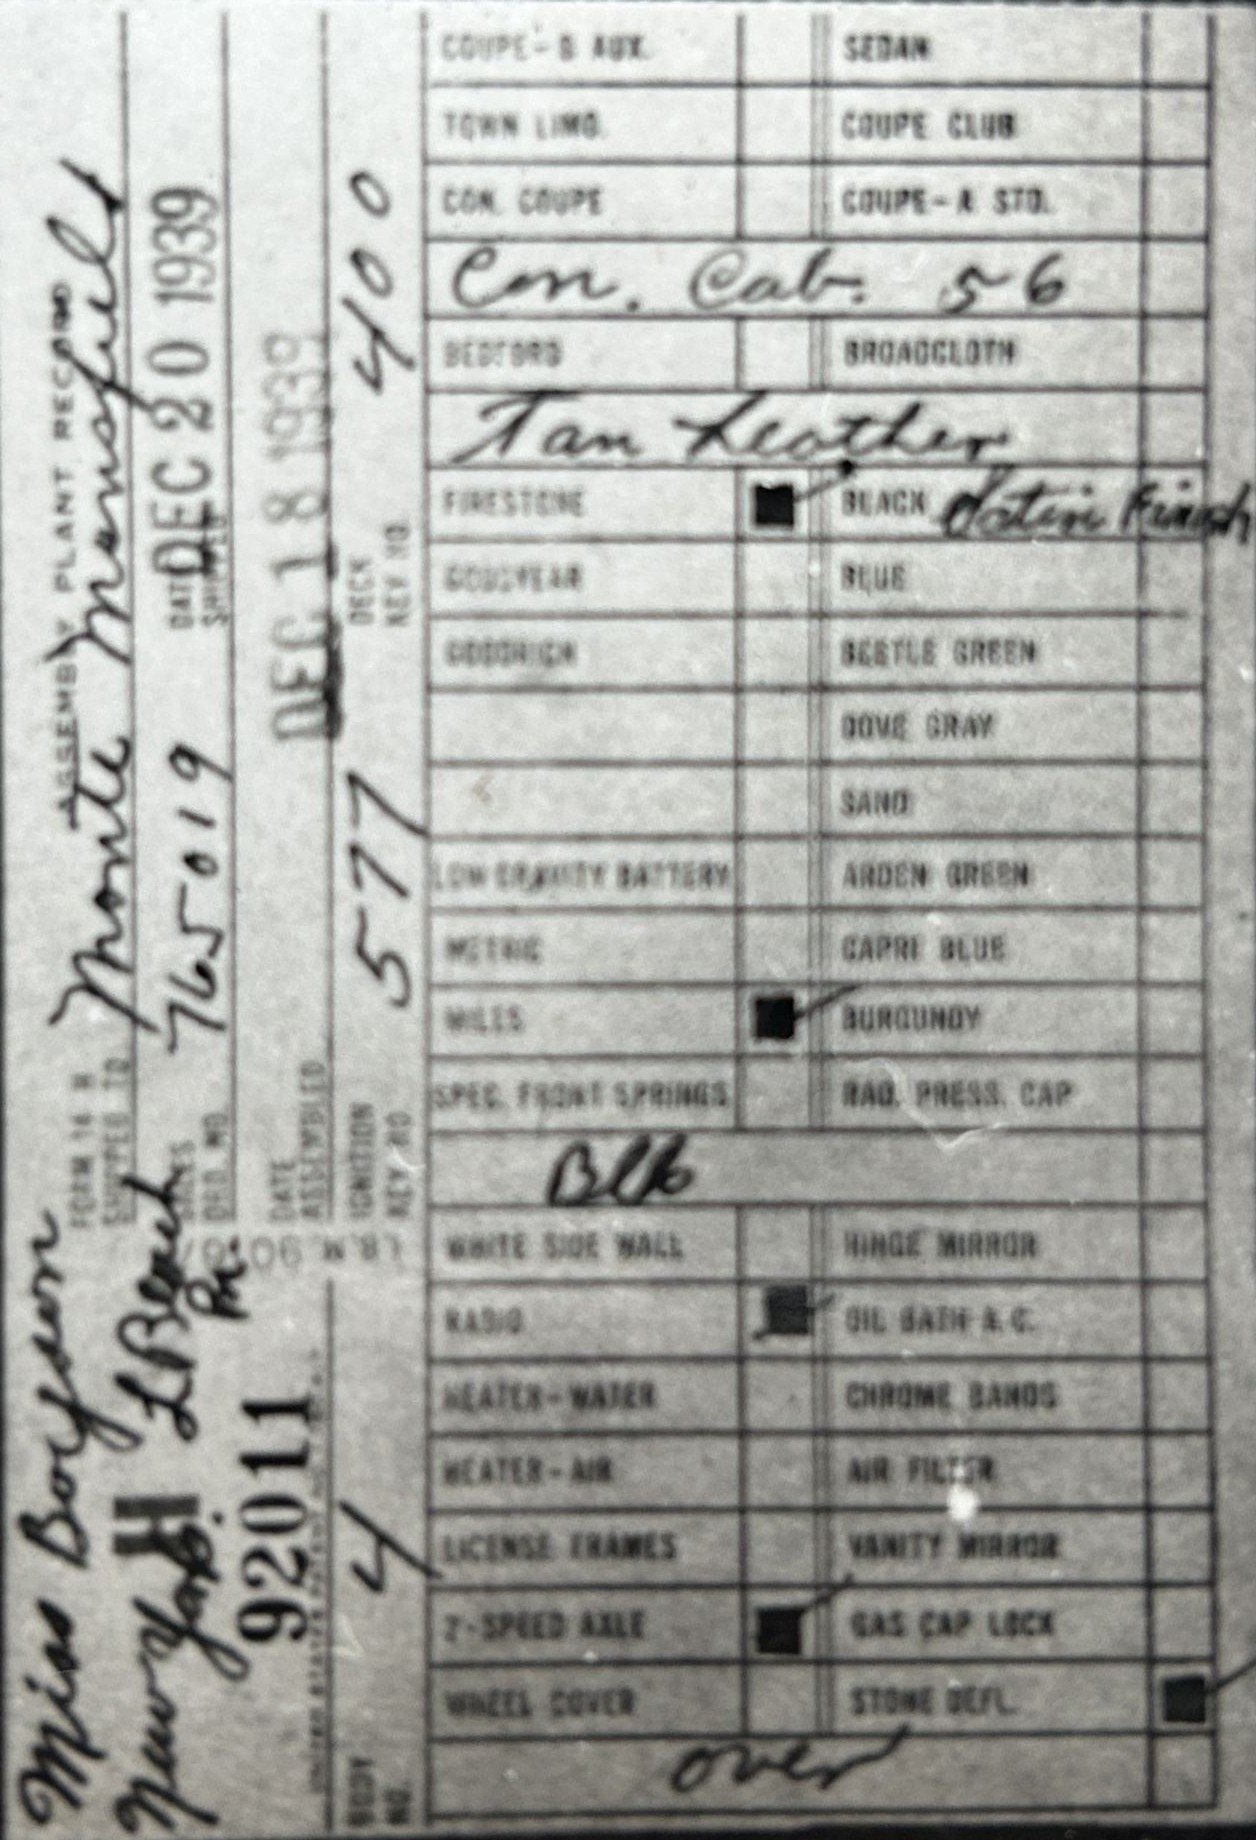 ASSEMBLY PLANT RECORD
Miss Boysen
FORM 14 H
SHIPPED TO Monte Mansfield
New York H L Beach
SALES ORD. NO. 765019 DATE SHIPPED DEC 20 1939
92011
DATE ASSEMBLED DEC 18 1939
BODY NO. 4 IGNITION KEY NO. 577 DECK KEY NO. 400
COUPE-B AUX. SEDAN
TOWN LIMO. COUPE CLUB
CON. COUPE COUPE-A STD.
Con. Cab. 56
BEDFORD BROADCLOTH
Tan Leather
FIRESTONE BLACK Satin Finish
GOODYEAR BLUE
GOODRICH BEETLE GREEN
DOVE GRAY
SAND
LOW GRAVITY BATTERY ARDEN GREEN
METRIC CAPRI BLUE
MILES BURGUNDY
SPEC. FRONT SPRINGS RAD. PRESS. CAP
Blk
WHITE SIDE WALL HINGE MIRROR
RADIO OIL BATH A.C.
HEATER-WATER CHROME BANDS
HEATER-AIR AIR FILTER
LICENSE FRAMES VANITY MIRROR
2-SPEED AXLE GAS CAP LOCK
WHEEL COVER STONE DEFL.
over